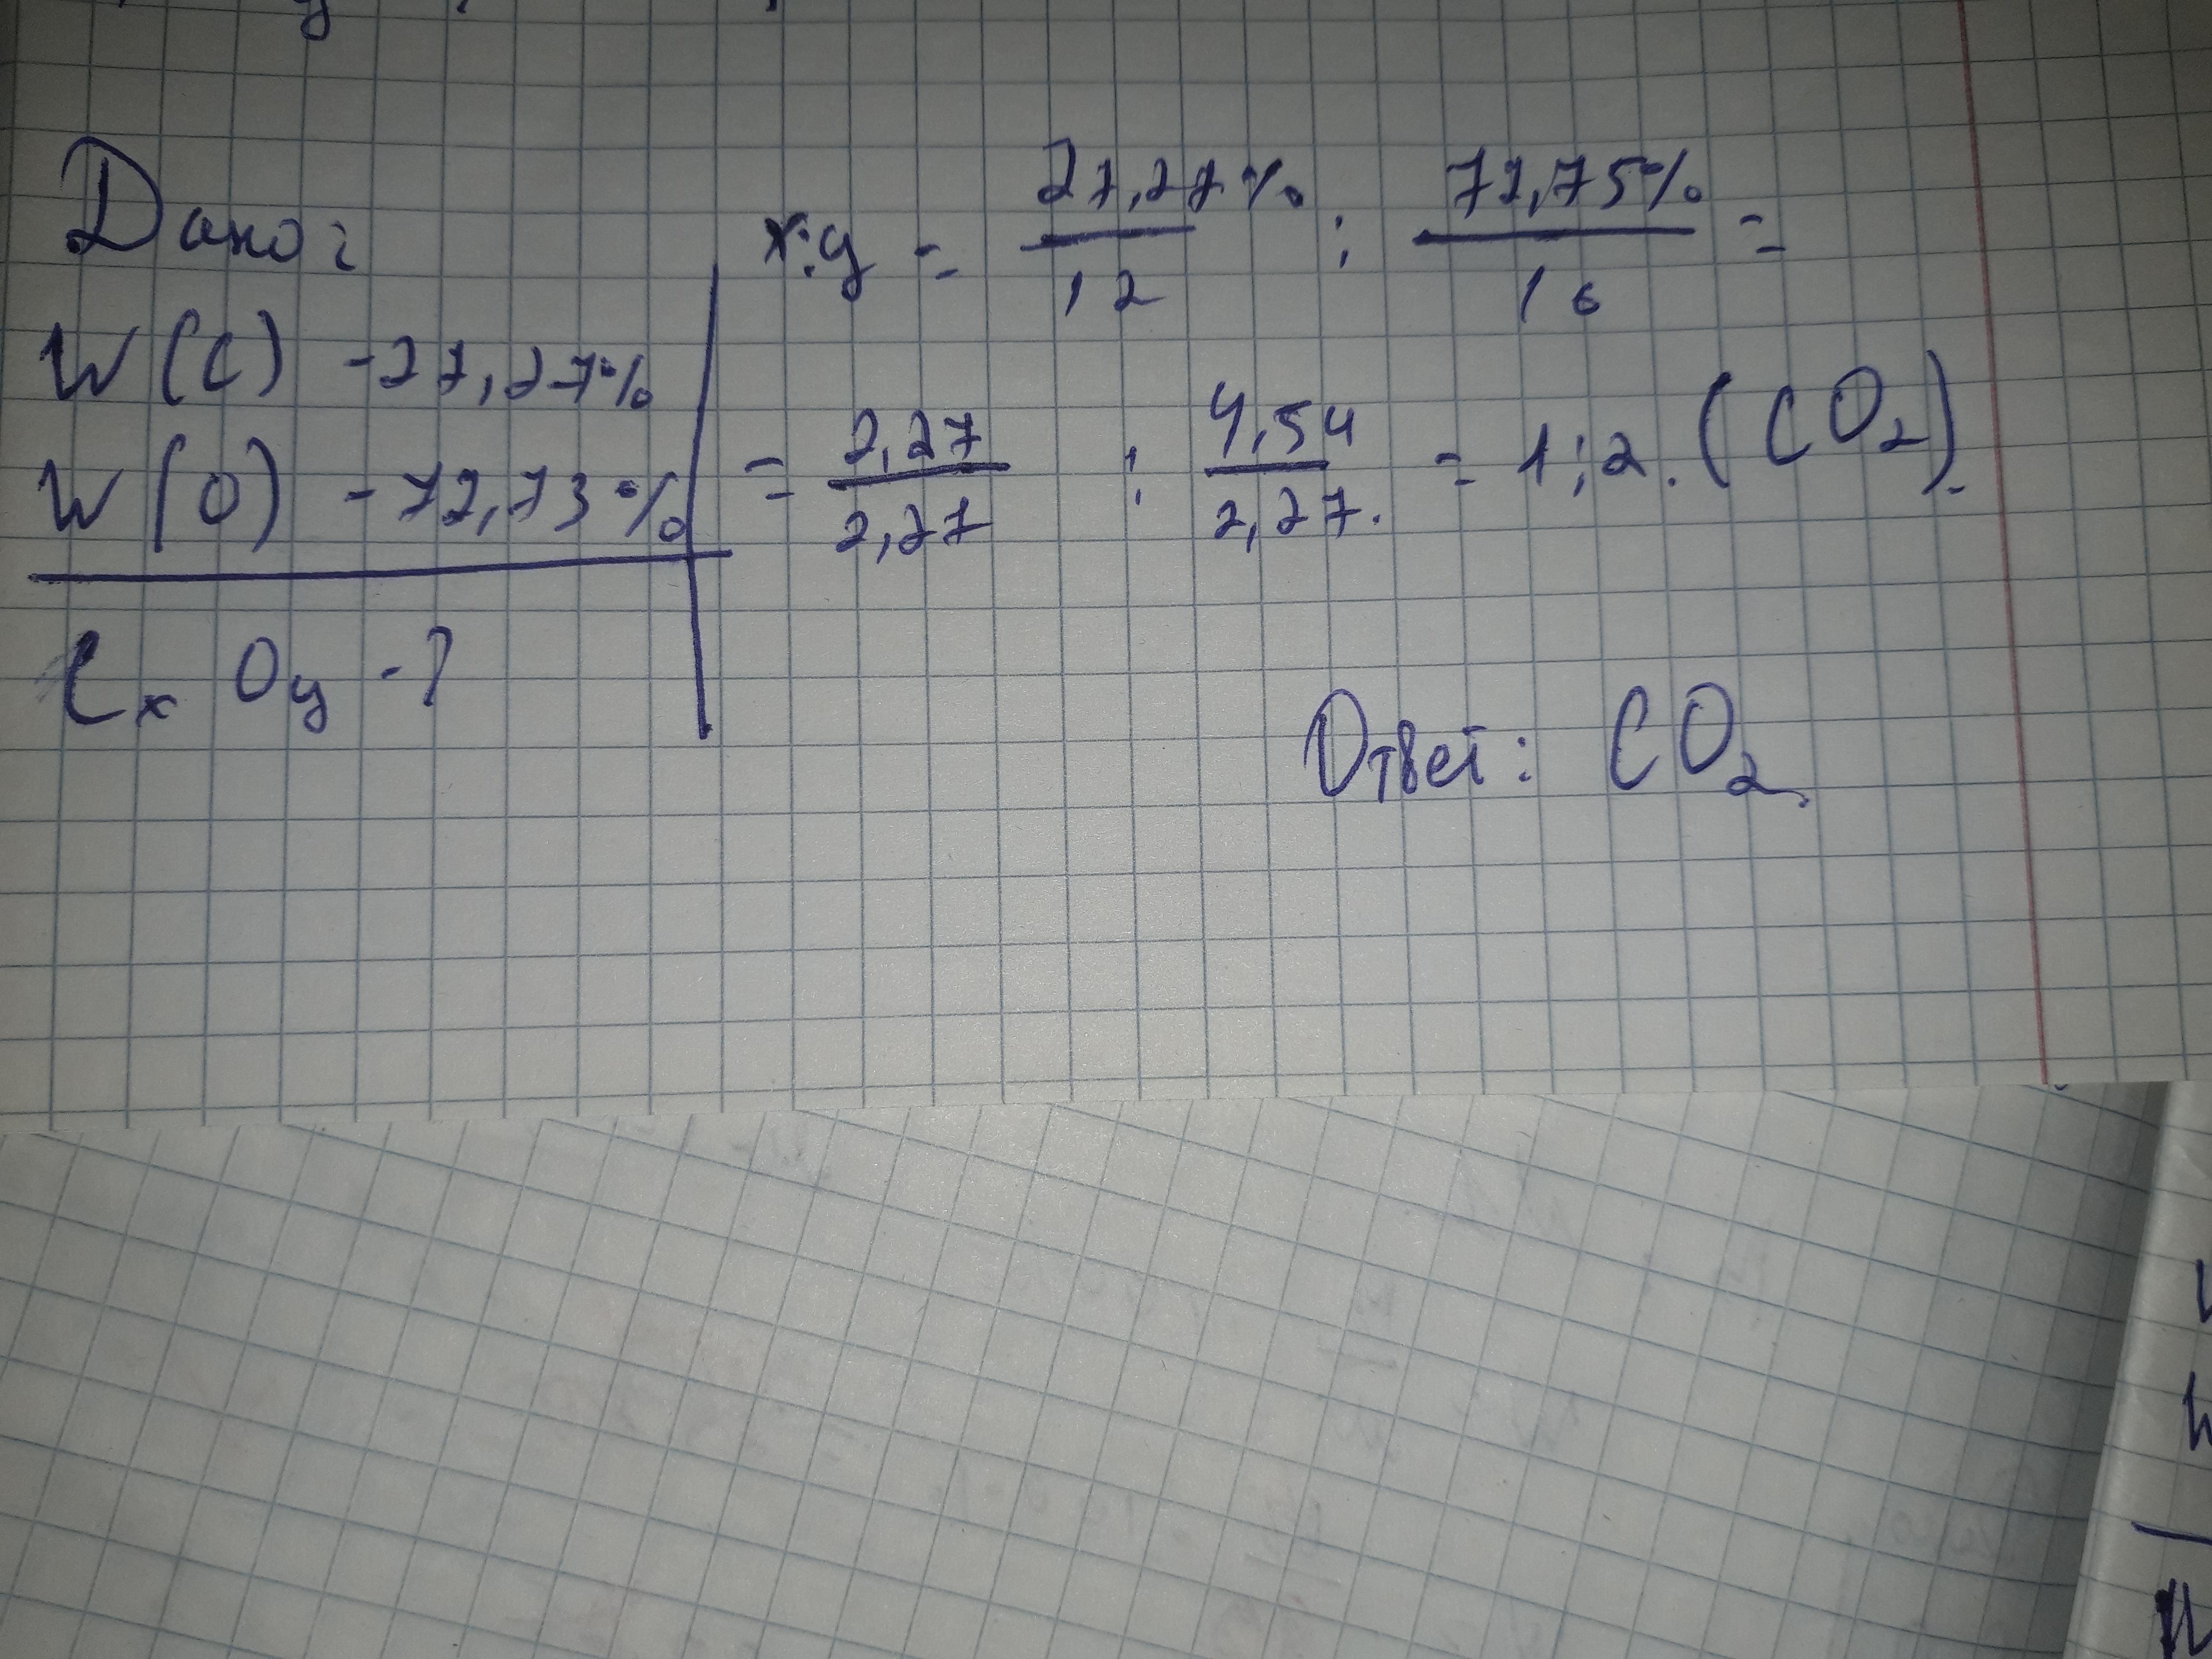 Дано:
W(C) - 27,27%
W(O) - 72,73%
CxOy - ?
x:y = 27,27%/12 : 72,75%/16 =
= 2,27/2,27 : 4,54/2,27. = 1:2. (CO2).
Ответ: CO2.